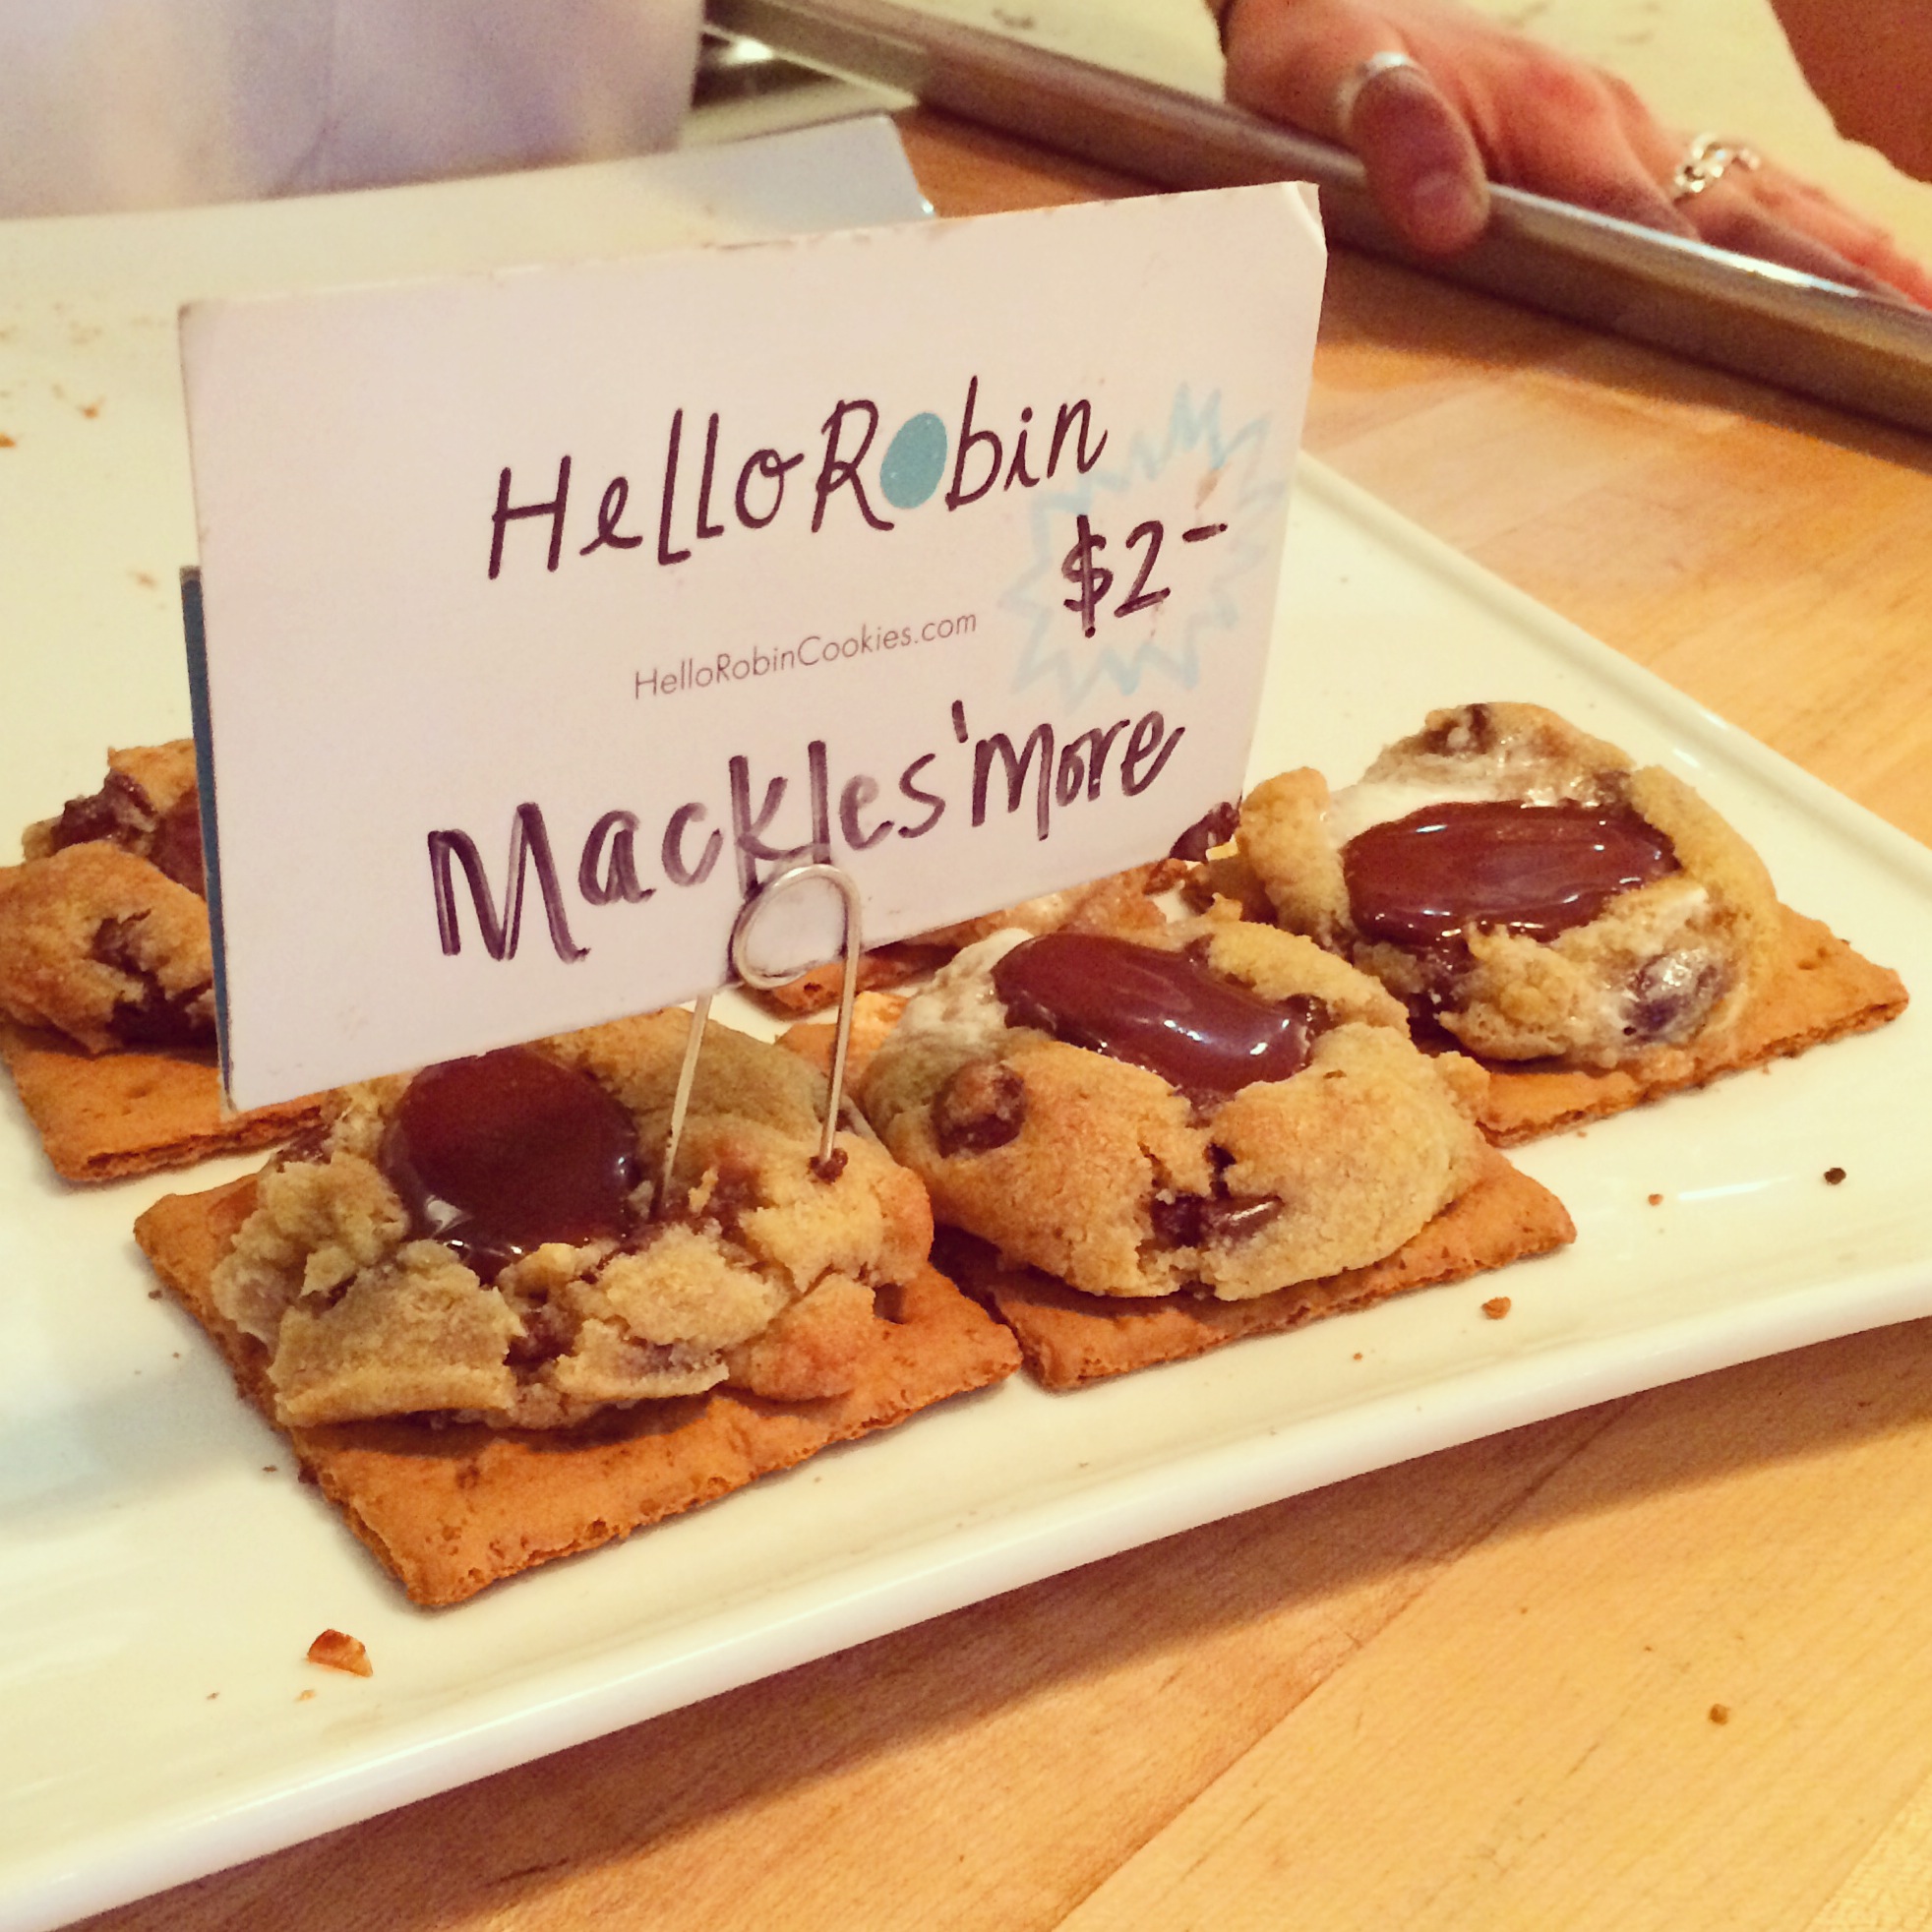 HelloRobin
$2-
HelloRobinCookies.com
Mackles'more